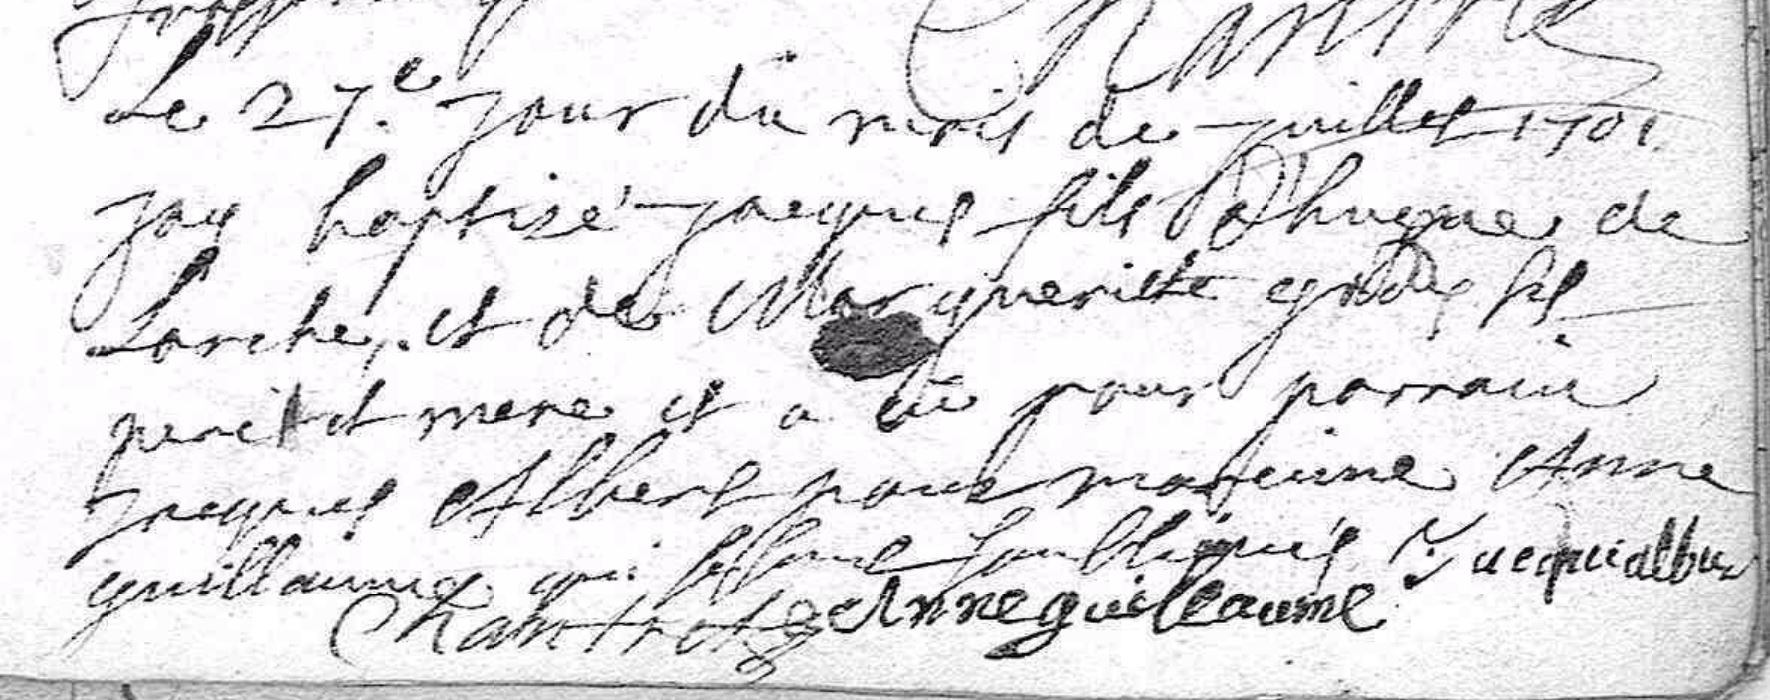 Le 27.e jour du mois de juillet 1701
jay baptisé jacques fils d'hugue de
Larche, et de Margueritte ses
pere et mere et a eü pour parrain
jacques Albert pour mareine Anne
guillaume qui se sont soubsignés Jacquialber
Chantrot Anne guilleaume